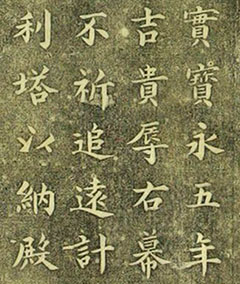 實寶永五年
吉貴辱右幕
不祈追遠計
利塔以納殿